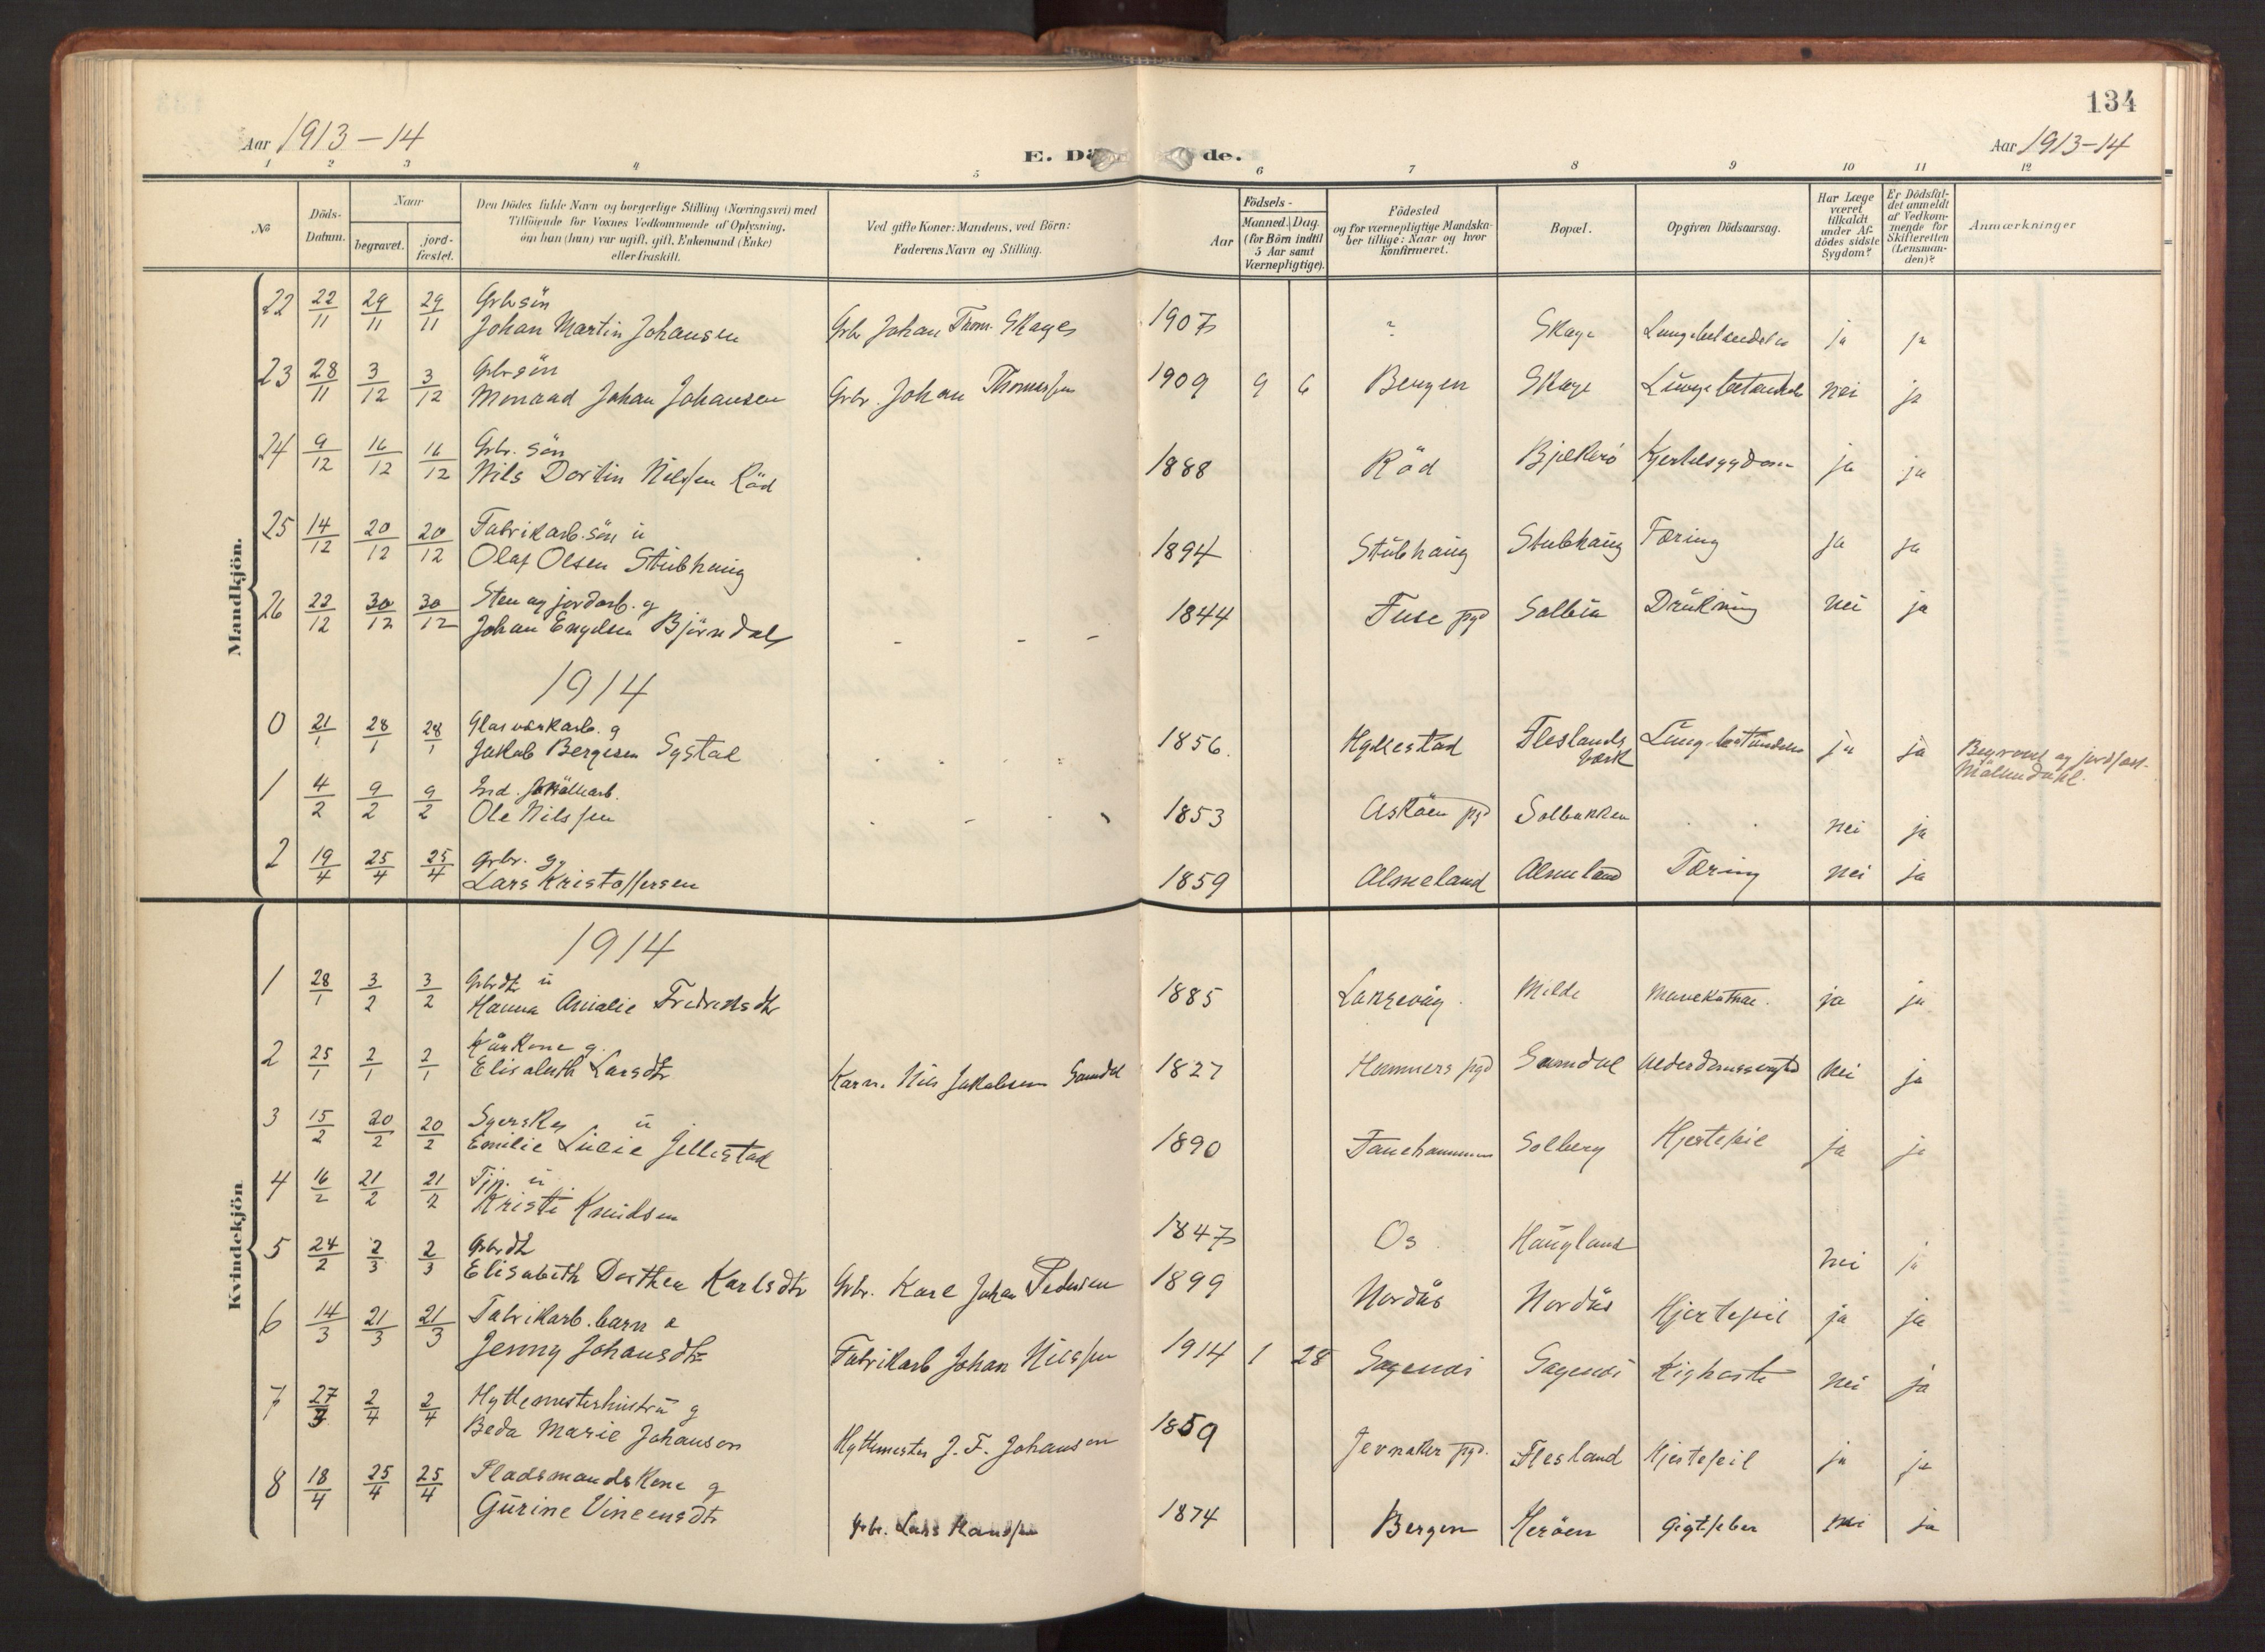 134
Aar 1913-14
E. Dö de.
Aar 1913-14
1 2 3 4 5 6 7 8 9 10 11 12
No
Döds-Datum.
Naar
begravet.
jord-fæstet.
Den Dödes fulde Navn og borgerlige Stilling (Næringsvei) med
Tilföiende for Voxnes Vedkommende af Oplysning,
om han (hun) var ugift, gift, Enkemand (Enke)
eller fraskilt.
Ved gifte Koner: Mandens, ved Börn:
Faderens Navn og Stilling.
Födsels-
Aar
Maaned. Dag.
(for Börn indtil
5 Aar samt
Værnepligtige).
Födested
og for værnepligtige Mandska-
ber tillige: Naar og hvor
konfirmeret.
Bopæl.
Opgiven Dödsaarsag.
Har Læge
været
tilkaldt
under Af-
dödes sidste
Sygdom?
Er Dödsfal-
det anmeldt
af Vedkom-
mende for
Skifteretten
(Lensman-
den)?
Anmærkninger
Mandkjön.
22 22/11 29/11 29/11 Grbr sön
Johan Martin Johansen Grbr Johan Thom. Skage 1907 ? Skage ja ja
23 28/11 3/12 3/12 Grbr sön
Monrad Johan Johansen Grbr. Johan Thomessen 1909 9 6 Bergen Skage nei ja
24 9/12 16/12 16/12 Grbr. sön
Nils Dortin Nilssen Röd 1888 Röd ja ja
25 14/12 20/12 20/12 Fabrikarb. sön u
Olaf Olsen Stubhaug 1894 Stubhaug Stubhaug Tæring ja ja
26 22/12 30/12 30/12 Sten og jordarb. g
Johan Engelsen Björndal - - - 1844 Fuse pgd Drukning nei ja
1914
0 21/1 28/1 28/1 Glasværkarb. g
Jakob Bergesen Systad 1856. Hyllestad Fleslands
værk ja ja Begravet og jordfæst.
Möllendahl.
1 4/2 9/2 9/2 Ind.
Ole Nilssen 1853 Asköen pgd Solbakken nei ja
2 19/4 25/4 25/4 Grbr. g
Lars Kristoffersen 1859 Almeland Almeland Tæring nei ja
Kvindekjön
1914
1 28/1 3/2 3/2 Grbrdtr u
Hanna Amalie Fredriksdtr 1885 Milde ja ja
2 25/1 2/1 2/1 Kårkone g.
Elisabeth Larsdtr Karm. Nils Jakobsen Samdal 1827 Hammers pgd Samdal nei ja
3 15/2 20/2 20/2 Syerske u
Emilie Lucie Jellestad 1890 Fanehammeren Solberg Hjertefeil ja ja
4 16/2 21/2 21/2 Tjp. u
Kristi Knudsen 1847 Os Haugland nei ja
5 24/2 2/3 2/3 Grbrdtr
Elisabeth Dorthea Karlsdtr Grbr. Karl Johan Pedersen 1899 Nordås Nordås Hjertefeil ja ja
6 14/3 21/3 21/3 Fabrikarb. barn
Jenny Johansdtr Fabrikarb Johan Nilssen 1914 1 28 Kighoste nei ja
7 27/3 2/4 2/4 Hyttemesterhustru g
Beda Marie Johanson Hyttemester J. F. Johanson 1859 Jevnaker pgd. Flesland Hjertefeil ja ja
8 18/4 25/4 25/4 Pladsmandskone g
Gurine Vincensdtr Grbr. Lars Hanssen 1874 Bergen Heröen Gigtfeber nei ja